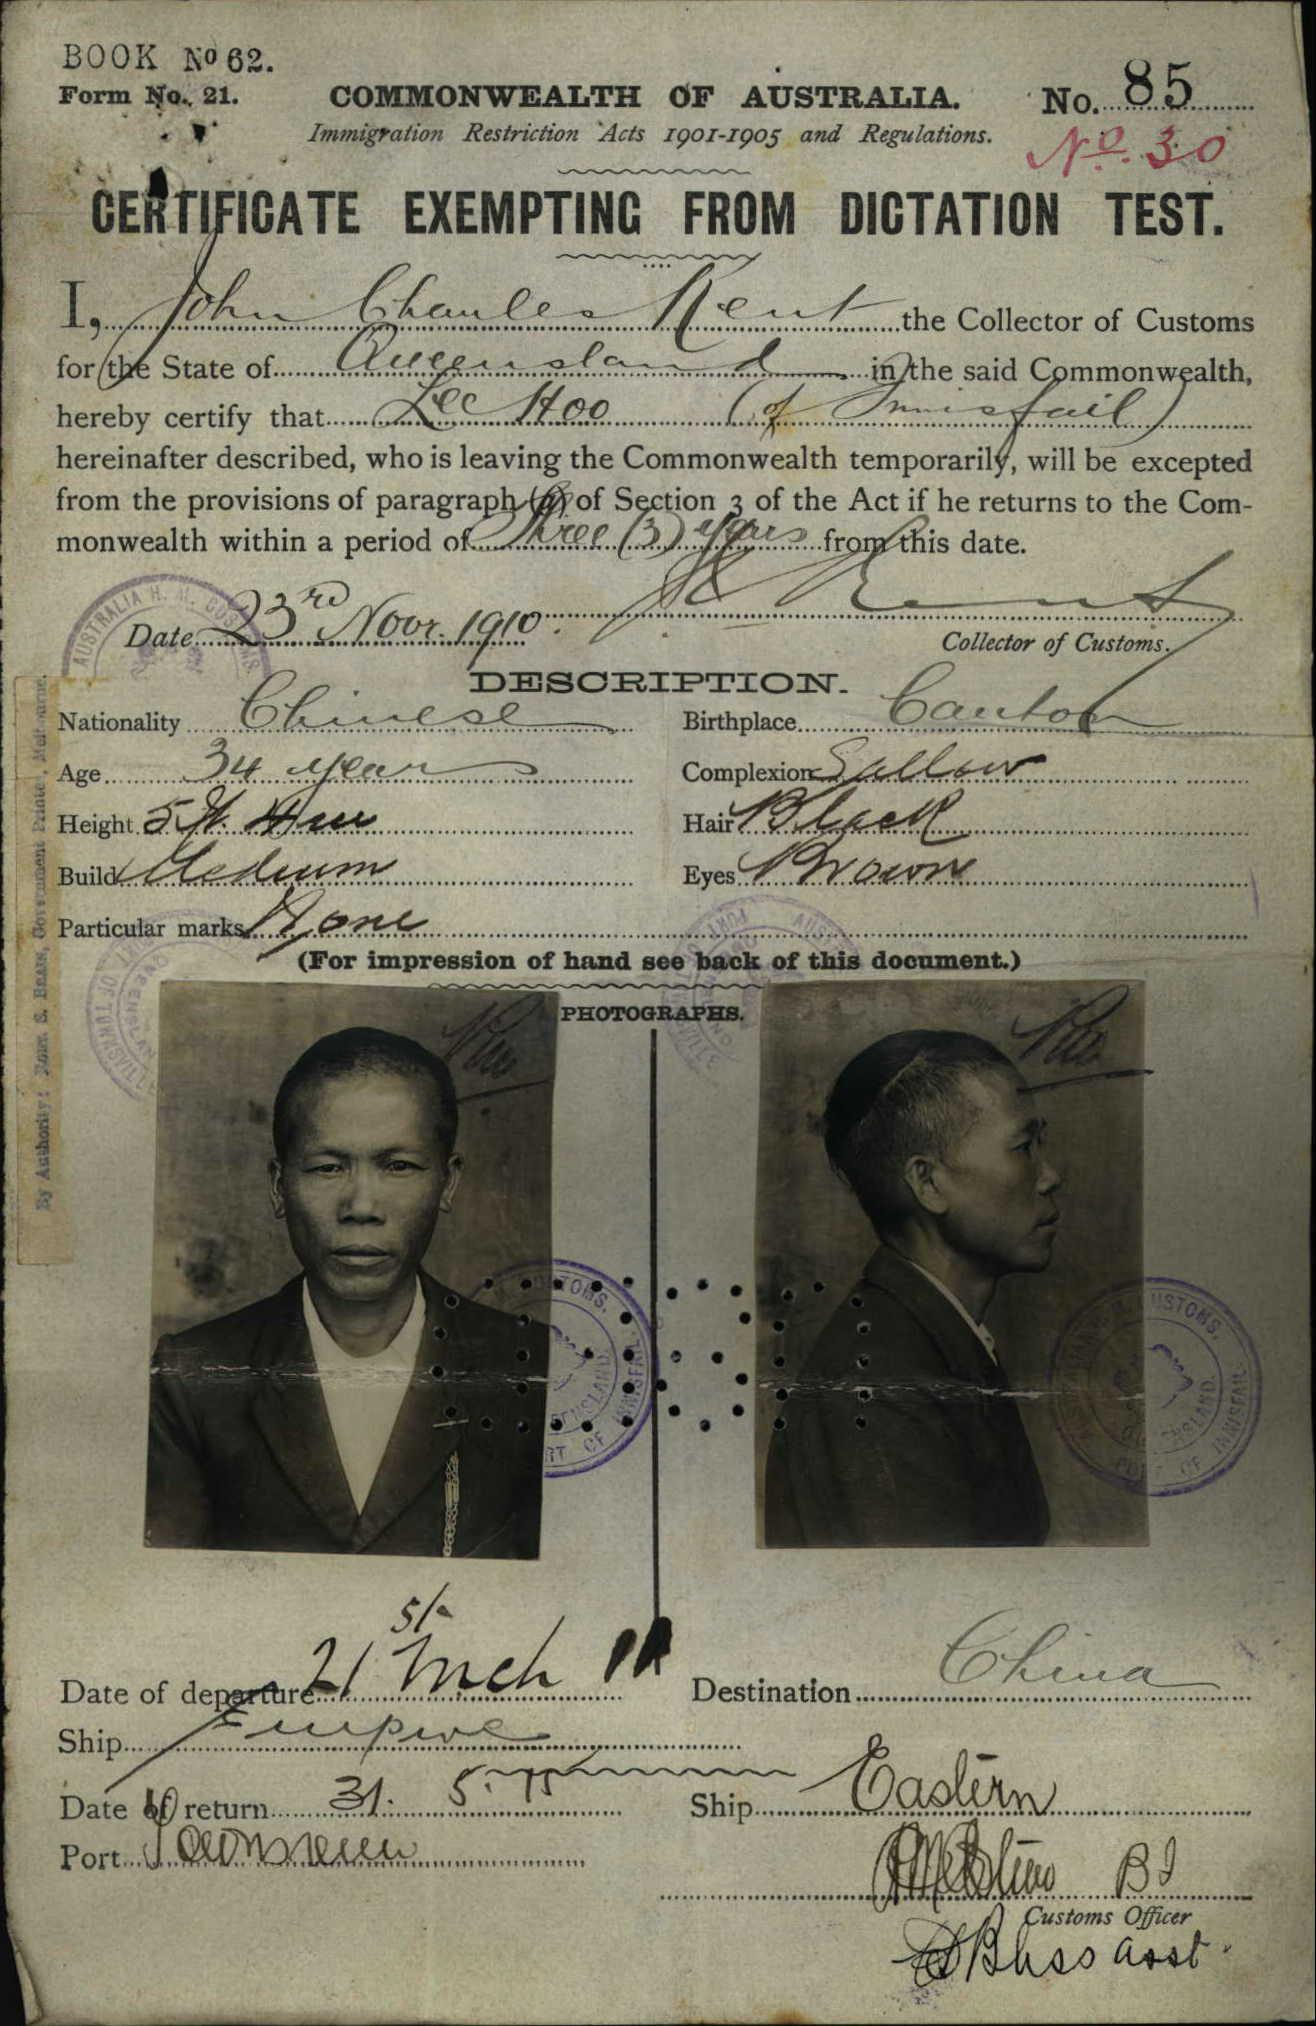 BOOK No 62.
Form No. 21.
COMMONWEALTH OF AUSTRALIA.
No. 85
Immigration Restriction Acts 1901-1905 and Regulations.
No. 30
CERTIFICATE EXEMPTING FROM DICTATION TEST.
I, John Charles Kent the Collector of Customs
for the State of Queensland in the said Commonwealth,
hereby certify that Lee Hoo (of Innisfail)
hereinafter described, who is leaving the Commonwealth temporarily, will be excepted
from the provisions of paragraph (a) of Section 3 of the Act if he returns to the Com-
monwealth within a period of Three (3) years from this date.
AUSTRALIA H. M. CUSTOMS
Date 23rd Novr. 1910. Kent
Collector of Customs.
DESCRIPTION.
Nationality Chinese Birthplace Canton
Age 34 years Complexion Sallow
Height 5 ft. 4 Hair Black
Build Medium Eyes Brown
Particular marks None
(For impression of hand see back of this document.)
PHOTOGRAPHS.
By Authority: ROBT. S. BRAIN, Government Printer, Melbourne.
PORT OF TOWNSVILLE
QUEENSLAND
CUSTOMS.
QUEENSLAND.
PORT OF INNISFAIL
CUSTOMS.
QUEENSLAND.
PORT OF INNISFAIL
Date of departure 21st Mch 11 Destination China
Ship Empire
Date of return 31. 5. 15 Ship Eastern
Port Townsville
Customs Officer
Bliss asst.